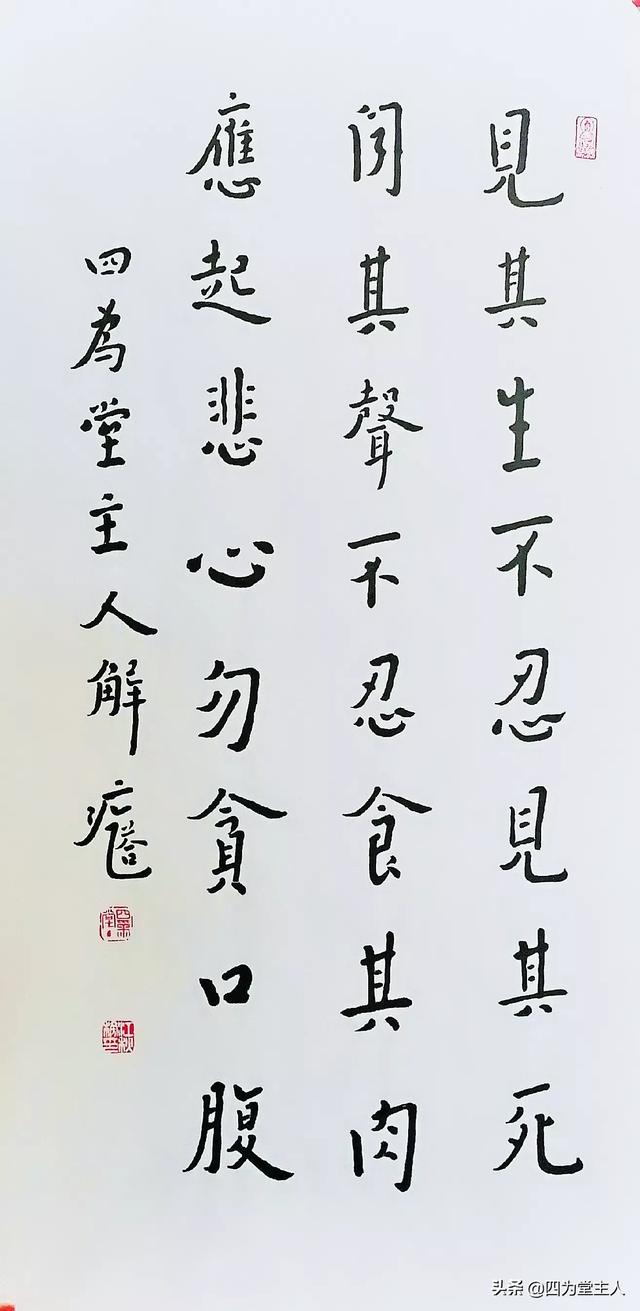 見其生不忍見其死
聞其聲不忍食其肉
應起悲心勿貪口腹
四為堂主人解
头条 @四为堂主人